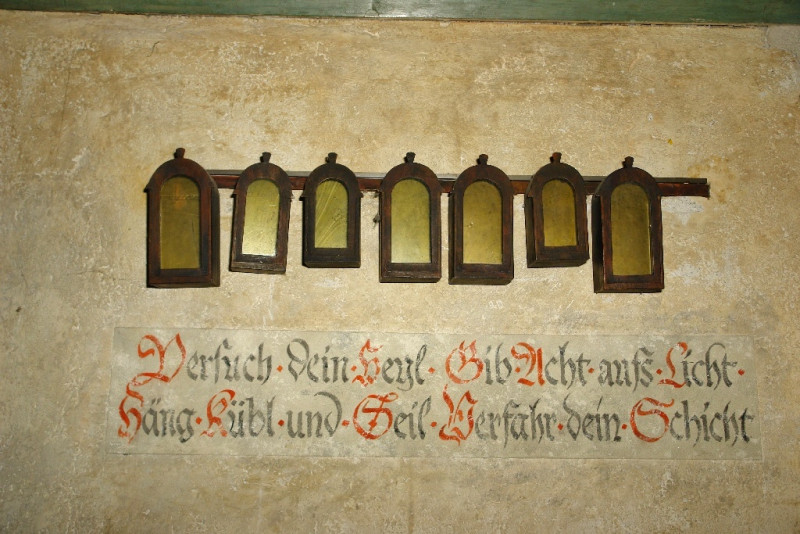 Versuch·dein·Heyl·Gib·Acht·aufs·Licht·
Häng·Kübl·und·Seil·Verfahr·dein·Schicht